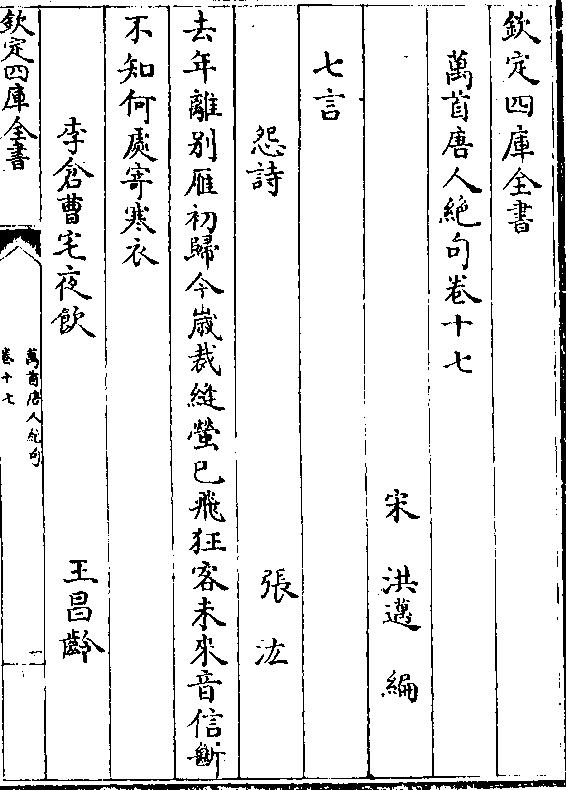 欽定四庫全書
萬首唐人絶句卷十七
宋 洪邁 編
七言
怨詩 張汯
去年離别雁初歸今嵗裁縫螢已飛狂客未來音信斷
不知何處寄寒衣
李倉曹宅夜飲 王昌齡
欽定四庫全書
萬首唐人絶句
卷十七
一